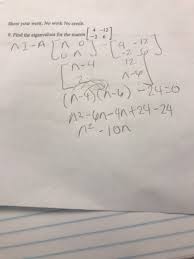 Show your work. No work No credit.
9. Find the eigenvalues for the matrix [4 -12
-2 6]
nI-A [n 0 - [4 -12
0 n] -2 6]
[n-4 12
2 n-6]
(n-4)(n-6) -24=0
n²-6n-4n+24-24
n²-10n